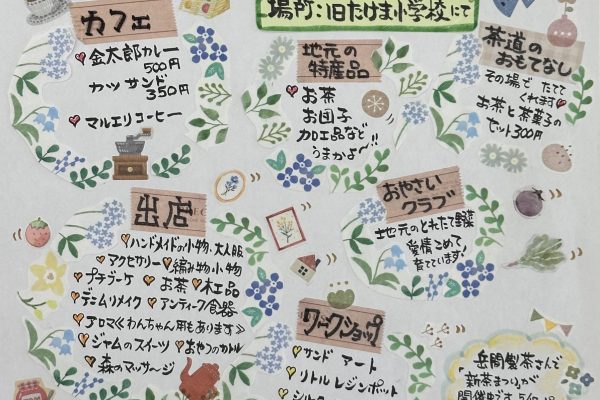 場所：旧たけま小学校にて
カフェ
金太郎カレー
500円
カツサンド
350円
マルエリコーヒー
地元の
特産品
お茶
お団子
加工品など
うまかよ〜!!
茶道の
おもてなし
その場で たてて
くれます
お茶と茶菓子の
セット300円
出店
ハンドメイドの小物、大人服
アクセサリー 編み物小物
プチブーケ お茶 木工品
デニムリメイク アンティーク食器
アロマ≪わんちゃん用もあります≫
ジャムのスイーツ おやつのカトル
森のマッサージ
おやさい
クラブ
地元のとれたて野菜
愛情こめて
育てています!
ワークショップ
サンド アート
リトルレジンポット
岳間製茶さんで
「新茶まつり」が